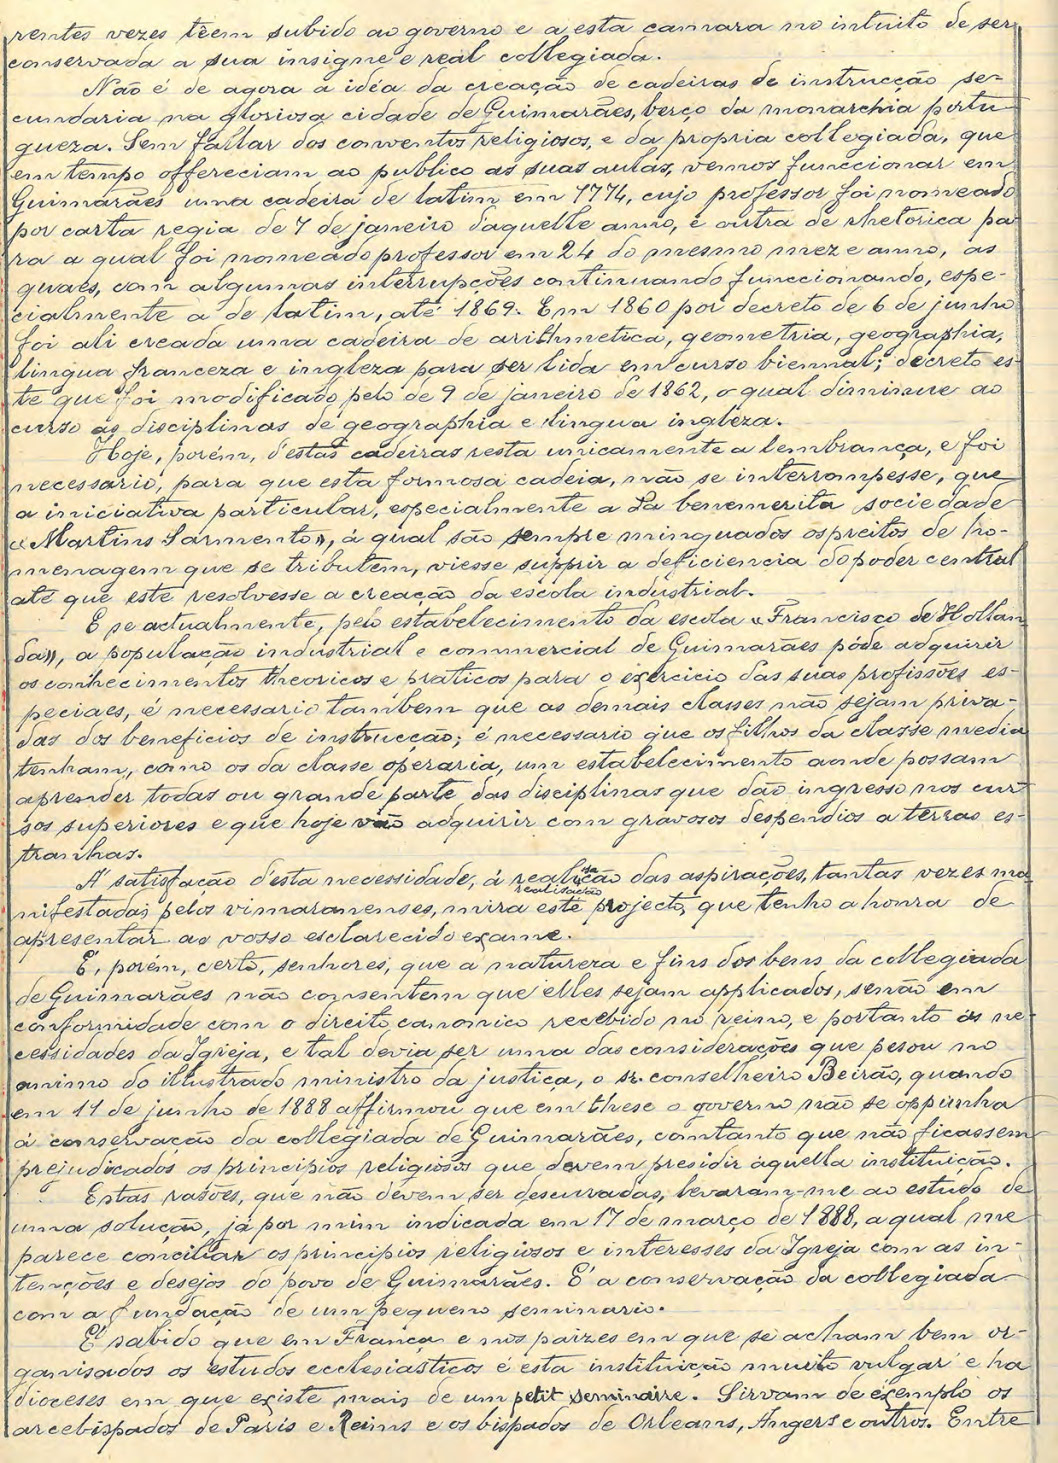 rentes vezes têem subido ao governo e a esta camara no intuito de ser
conservada a sua insigne e real collegiada.
Não é de agora a idéa da creação de cadeiras de instrucção se-
cundaria na gloriosa cidade de Guimarães, berço da monarchia portu-
gueza. Sem fallar dos conventos religiosos, e da propria collegiada, que
em tempo offereciam ao publico as suas aulas, vemos funccionar em
Guimarães uma cadeira de latim em 1774, cujo professor foi nomeado
por carta regia de 7 de janeiro daquelle anno, e outra de rhetorica pa-
ra a qual foi nomeado professor em 24 do mesmo mez e anno, as
quaes, com algumas interrupcões continuando funccionando, espe-
cialmente a de latim, até 1869. Em 1860 por decreto de 6 de junho
foi ali creada uma cadeira de arithmetica, geometria, geographia,
lingua franceza e ingleza para ser lida em curso biennal; decreto es-
te que foi modificado pelo de 9 de janeiro de 1862, o qual diminue ao
curso as disciplinas de geographia e lingua ingleza.
Hoje, porém, d'estas cadeiras resta unicamente a lembrança, e foi
necessario, para que esta formosa cadeia, não se interrompesse, que
a iniciativa particular, especialmente a da benemerita sociedade
«Martins Sarmento», á qual são sempre minguados os preitos de ho-
menagem que se tributem, viesse supprir a deficiencia do poder central
até que este resolvesse a creação da escola industrial.
E se actualmente, pelo estabelecimento da escola «Francisco de Hollan
da», a população industrial e commercial de Guimarães póde adquirir
os conhecimentos theoricos e praticos para o exercicio das suas profissões es-
peciaes, é necessario tambem que as demais classes não sejam priva-
das dos beneficios de instrucção; é necessario que os filhos da classe media
tenham, como os da classe operaria, um estabelecimento aonde possam
aprender todas ou grande parte das disciplinas que dão ingresso nos cur-
sos superiores e que hoje vão adquirir com gravosos despendios a terras es-
tranhas.
Á satisfação d'esta necessidade, á realisação das aspirações, tantas vezes ma
realisação
nifestadas pelos vimaranenses, mira este projecto, que tenho a honra de
apresentar ao vosso esclarecido exame.
É, porém, certo, senhores, que a natureza e fins dos bens da collegiada
de Guimarães não consentem que elles sejam applicados, senão em
conformidade com o direito canonico recebido no reino, e portanto ás ne
cessidades da Igreja, e tal devia ser uma das considerações que pesou no
animo do illustrado ministro da justiça, o sr. conselheiro Beirão, quando
em 11 de junho de 1888 affirmou que em these o governo não se oppunha
á conservação da collegiada de Guimarães, comtanto que não ficassem
prejudicados os principios religiosos que devem presidir áquella instituição.
Estas rasões, que não devem ser descuradas, levaram-me ao estudo de
uma solução, já por mim indicada em 17 de março de 1888, a qual me
parece conciliar os principios religiosos e interesses da Igreja com as in-
tenções e desejos do povo de Guimarães. É a conservação da collegiada
com a fundação de um pequeno seminario.
É sabido que em França e nos paizes em que se acham bem or-
ganisados os estudos ecclesiasticos é esta instituição muito vulgar e ha
dioceses em que existe mais de um petit seminaire. Sirvam de exemplo os
arcebispados de Paris e Reims e os bispados de Orleans, Angers e outros. Entre